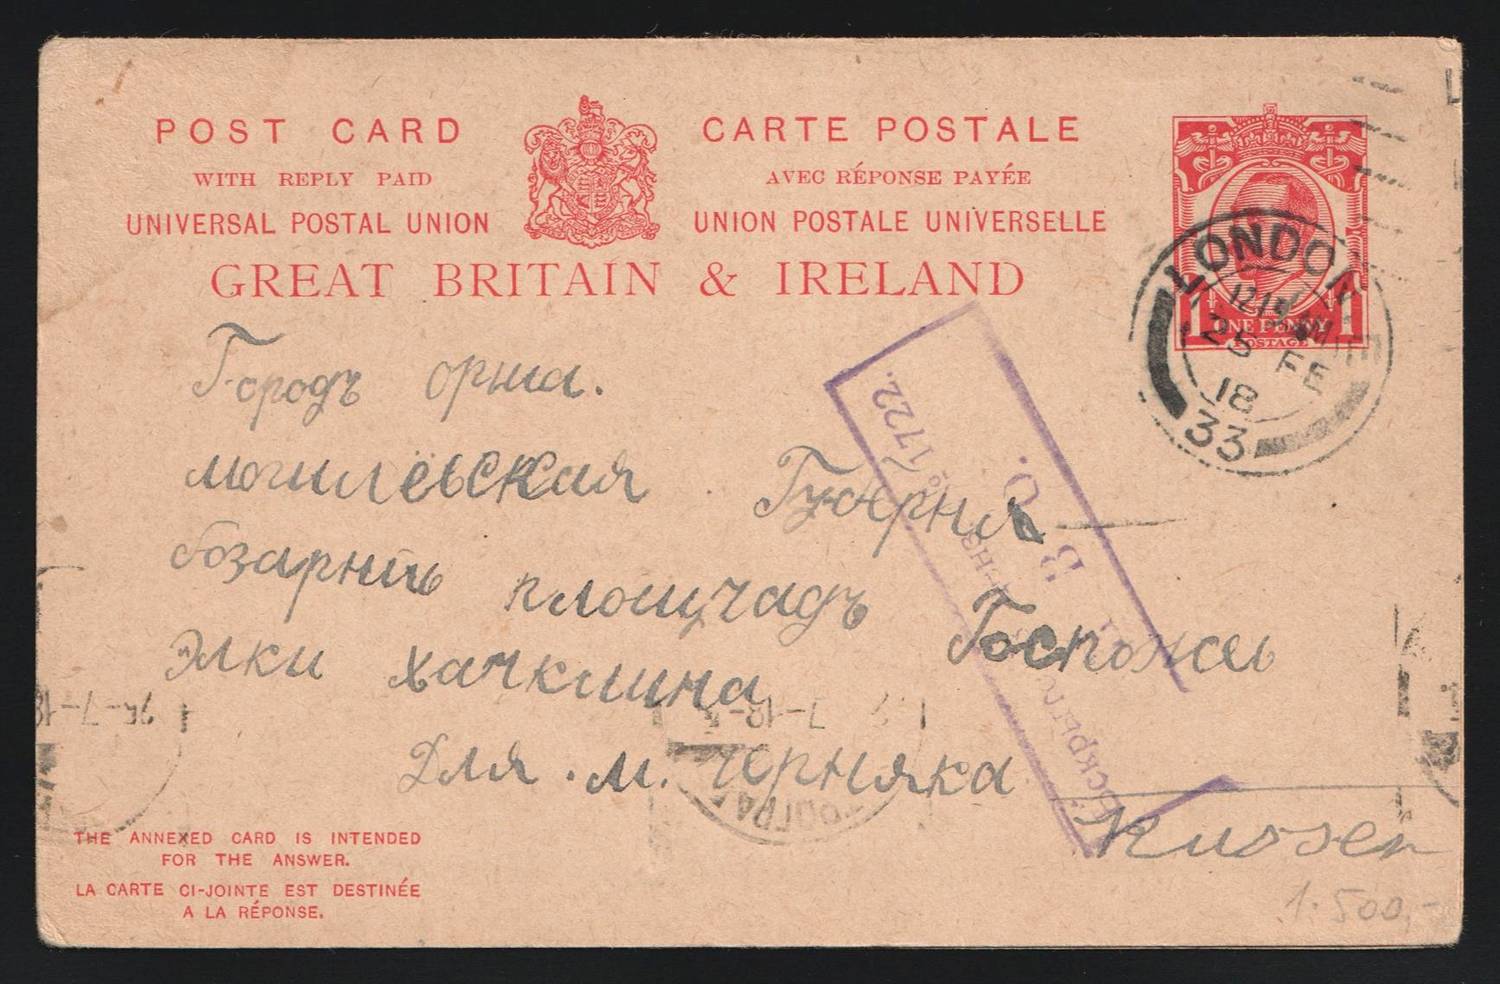 POST CARD
WITH REPLY PAID
UNIVERSAL POSTAL UNION
CARTE POSTALE
AVEC RÉPONSE PAYÉE
UNION POSTALE UNIVERSELLE
GREAT BRITAIN & IRELAND
1 ONE PENNY 1
POSTAGE
LONDON
25 FE
18
33
Городъ орша.
могилёвская Губерня
базарнть площчадъ Госпожы
Элки хачкшна
Для м. Черняка
Russen
№ 1722.
В. Ц.
7-18
25-7-18
THE ANNEXED CARD IS INTENDED
FOR THE ANSWER.
LA CARTE CI-JOINTE EST DESTINÉE
A LA RÉPONSE.
1.500,-